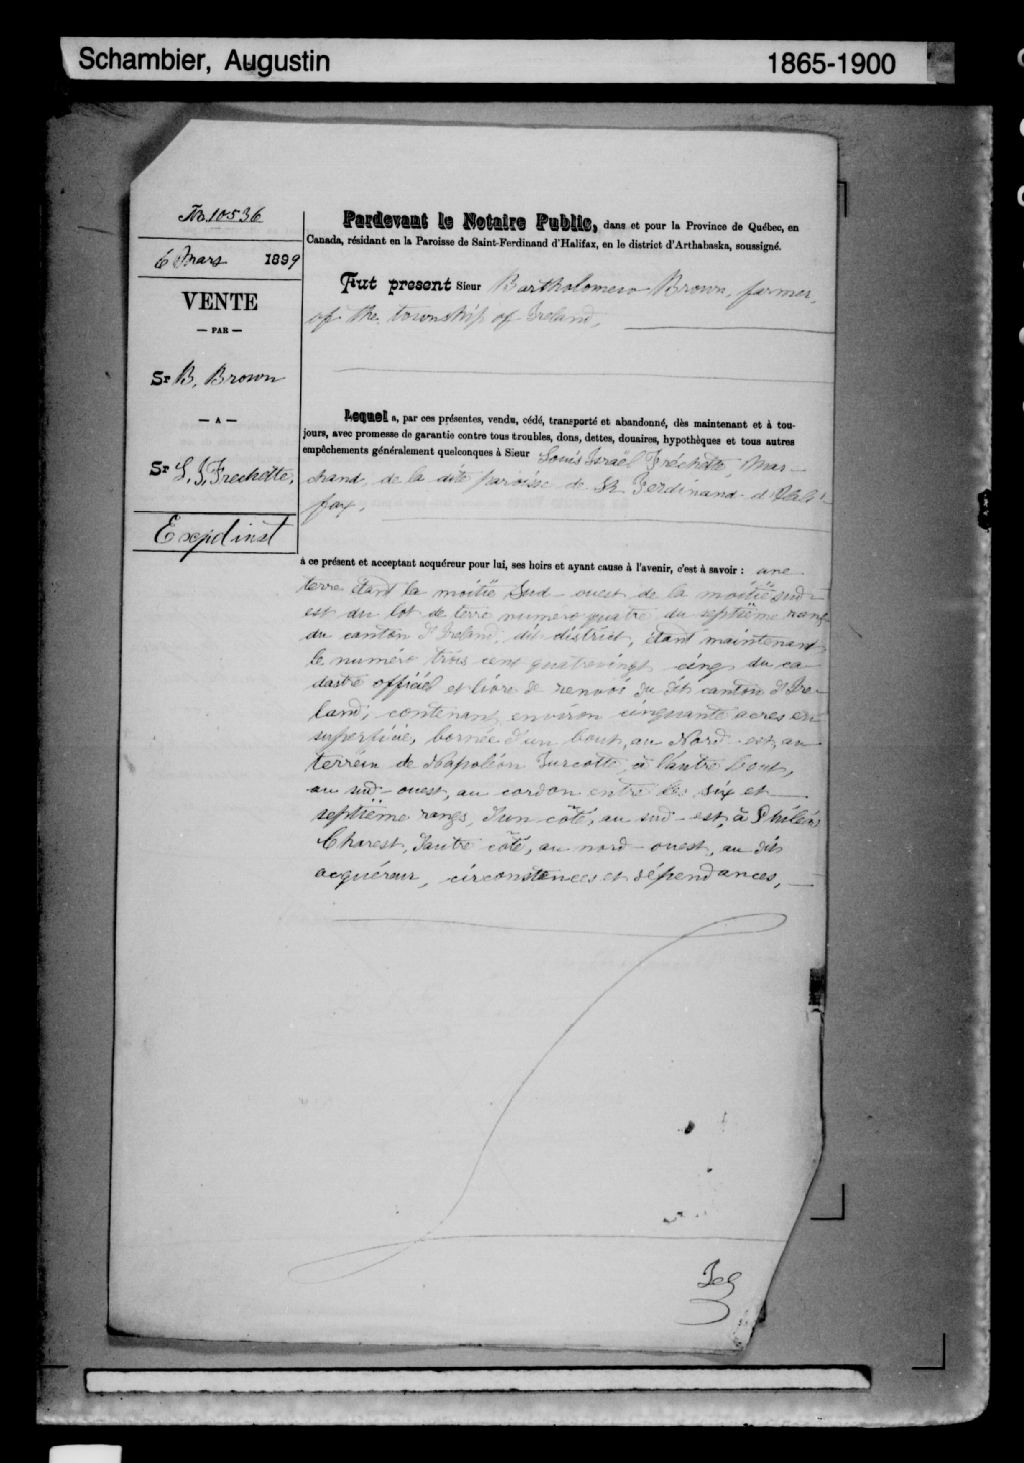 Schambier, Augustin
1865-1900
No 10536
6 Mars 1899
VENTE
— PAR —
Sr B. Brown
— A —
Sr L. I. Frechette,
Expd inst
Pardevant le Notaire Public, dans et pour la Province de Québec, en
Canada, résidant en la Paroisse de Saint-Ferdinand d'Halifax, en le district d'Arthabaska, soussigné.
Fut present Sieur Bartholomew Brown, farmer,
of the township of Ireland,
Lequel a, par ces présentes, vendu, cédé, transporté et abandonné, dès maintenant et à tou-
jours, avec promesse de garantie contre tous troubles, dons, dettes, douaires, hypothèques et tous autres
empêchements généralement quelconques à Sieur Louis Israël Fréchette, Mar-
chand, de la dite paroisse de St Ferdinand d'Hali-
fax,
à ce présent et acceptant acquéreur pour lui, ses hoirs et ayant cause à l'avenir, c'est à savoir : une
terre étant la moitié Sud-ouest de la moitié sud-
est du lot de terre numéro quatre du septième rang
du canton d'Ireland, dit district, étant maintenant
le numéro trois cent quatrevingt cinq du ca-
dastre officiel et livre de renvoi du dit canton d'Ire-
land; contenant environ cinquante acres en
superficie, bornée d'un bout, au Nord-est, au
terrein de Napoléon Turcotte, à l'autre bout,
au sud-ouest, au cordon entre les six et
septième rangs, d'un côté, au sud-est, à Philéas
Charest, d'autre côté, au nord-ouest, au dit
acquéreur, circonstances et dépendances,